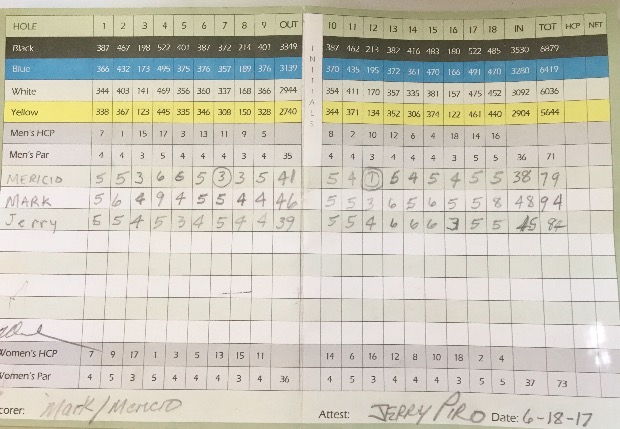 HOLE 1 2 3 4 5 6 7 8 9 OUT 10 11 12 13 14 15 16 17 18 IN TOT HCP NET
Black 387 467 198 522 401 387 372 214 401 3349 387 462 213 382 416 483 180 522 485 3530 6879
Blue 366 432 173 495 375 376 357 189 376 3139 370 435 195 372 361 470 166 491 470 3280 6419
White 344 403 141 469 356 360 337 168 366 2944 354 411 170 357 335 381 157 475 452 3092 6036
Yellow 338 367 123 445 335 346 308 150 328 2740 344 371 134 352 306 374 122 461 440 2904 5644
INITIALS
Men's HCP 7 1 15 17 3 13 11 9 5 8 2 10 12 6 4 18 14 16
Men's Par 4 4 3 5 4 4 4 3 4 35 4 4 3 4 4 4 3 5 5 36 71
MERICIO 5 5 3 6 6 5 3 3 5 41 5 4 1 5 4 5 4 5 5 38 79
MARK 5 6 4 9 4 5 5 4 4 46 5 5 3 6 5 6 5 5 8 48 94
Jerry 5 5 4 5 3 4 5 4 4 39 5 5 4 6 6 6 3 5 5 45 84
Women's HCP 7 9 17 1 3 5 13 15 11 14 6 16 12 8 10 18 2 4
Women's Par 4 5 3 5 4 4 4 3 4 36 4 5 3 4 4 4 3 5 5 37 73
corer: Mark/Mericio Attest: JERRY PIRO Date: 6-18-17